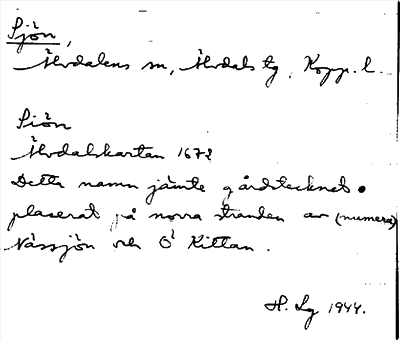 Sjön,
Älvdalens sn, Älvdals tg, Kopp. l.
Siön
Älvdalskartan 1672
Detta namn jämte gårdstecknet •
plaserat på norra stranden av (numera)
Nässjön och Ö Kittan.
H. Lg 1944.